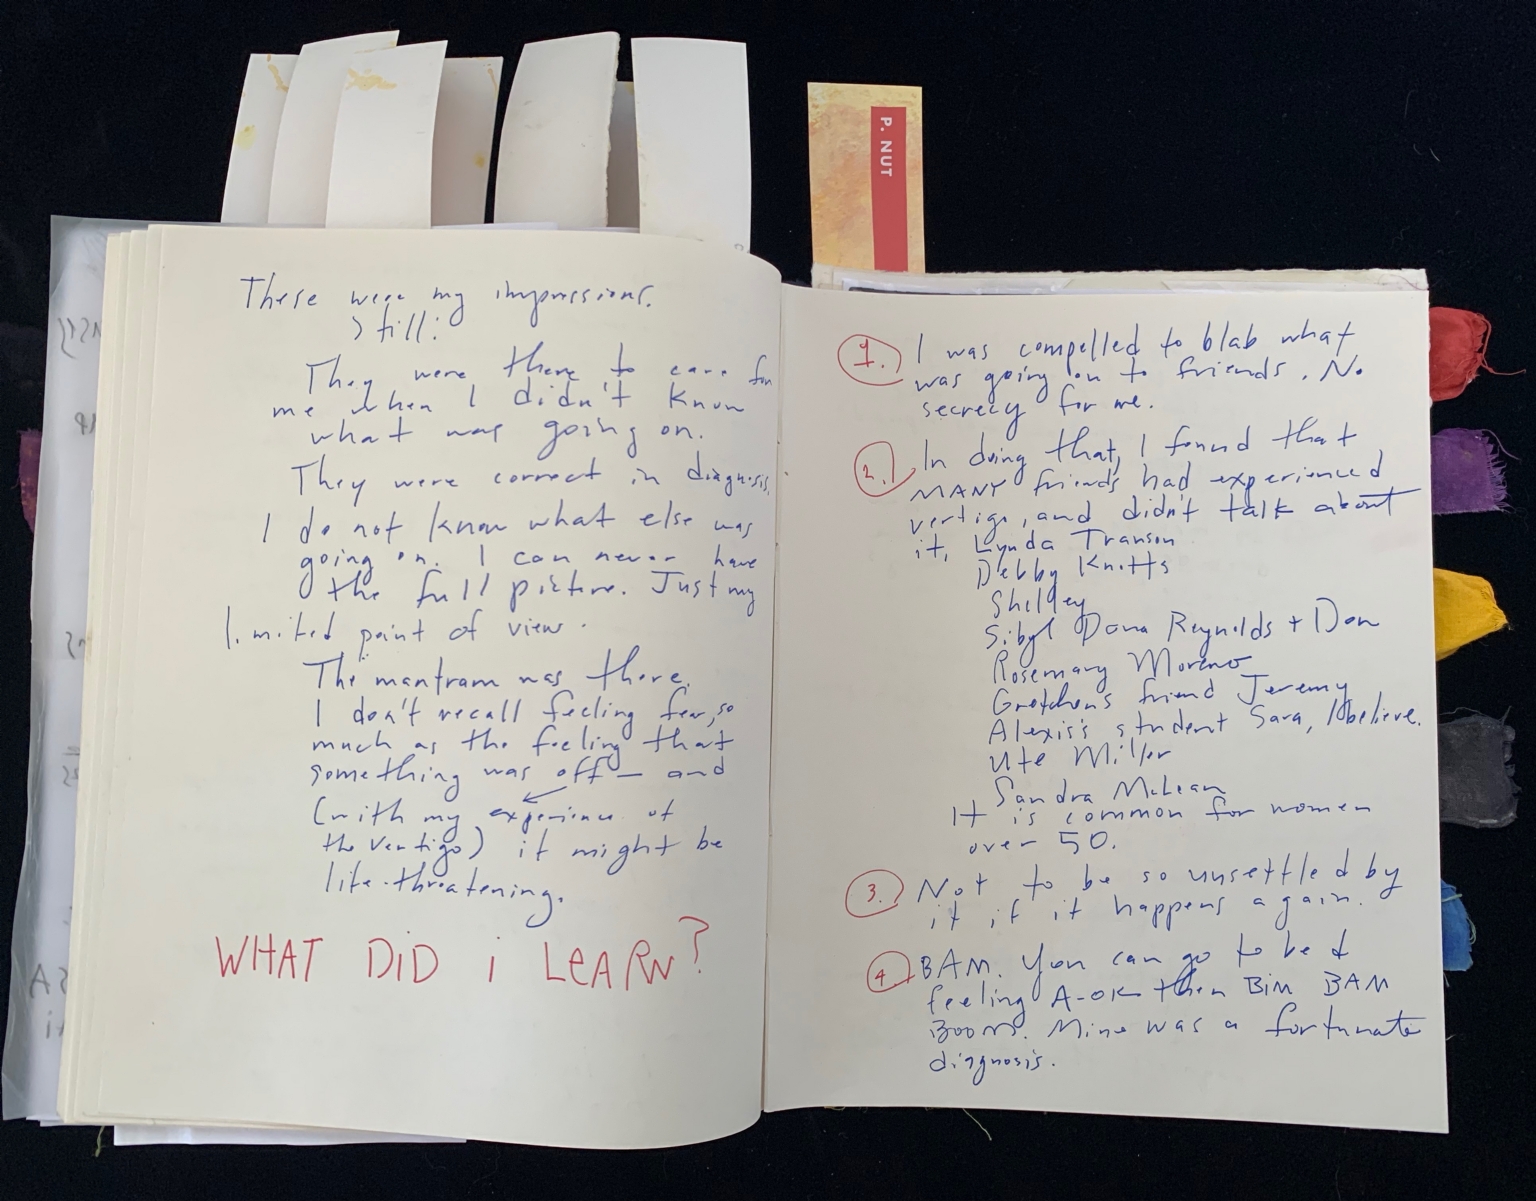 P. NUT
These were my impressions.
Still:
They were there to care for
me when I didn't know
what was going on.
They were correct in diagnosis.
I do not know what else was
going on. I can never have
the full picture. Just my
limited point of view.
The mantram was there.
I don't recall feeling fear, so
much as the feeling that
something was off — and
(with my experience of
the vertigo) it might be
life-threatening.
WHAT DiD i LeARN?
1. I was compelled to blab what
was going on to friends. No
secrecy for me.
2. In doing that, I found that
MANY friends had experienced
vertigo, and didn't talk about
it. Lynda Transon
Debby Knotts
Shelley
Sibyl Dana Reynolds + Don
Rosemary Moreno
Gretchen's friend Jeremy
Alexis's student Sara, I believe.
Ute Miller
Sandra McLean
It is common for women
over 50.
3. Not to be so unsettled by
it if it happens again.
4. BAM. You can go to bed
feeling A-OK then BIM BAM
BOOM. Mine was a fortunate
diagnosis.